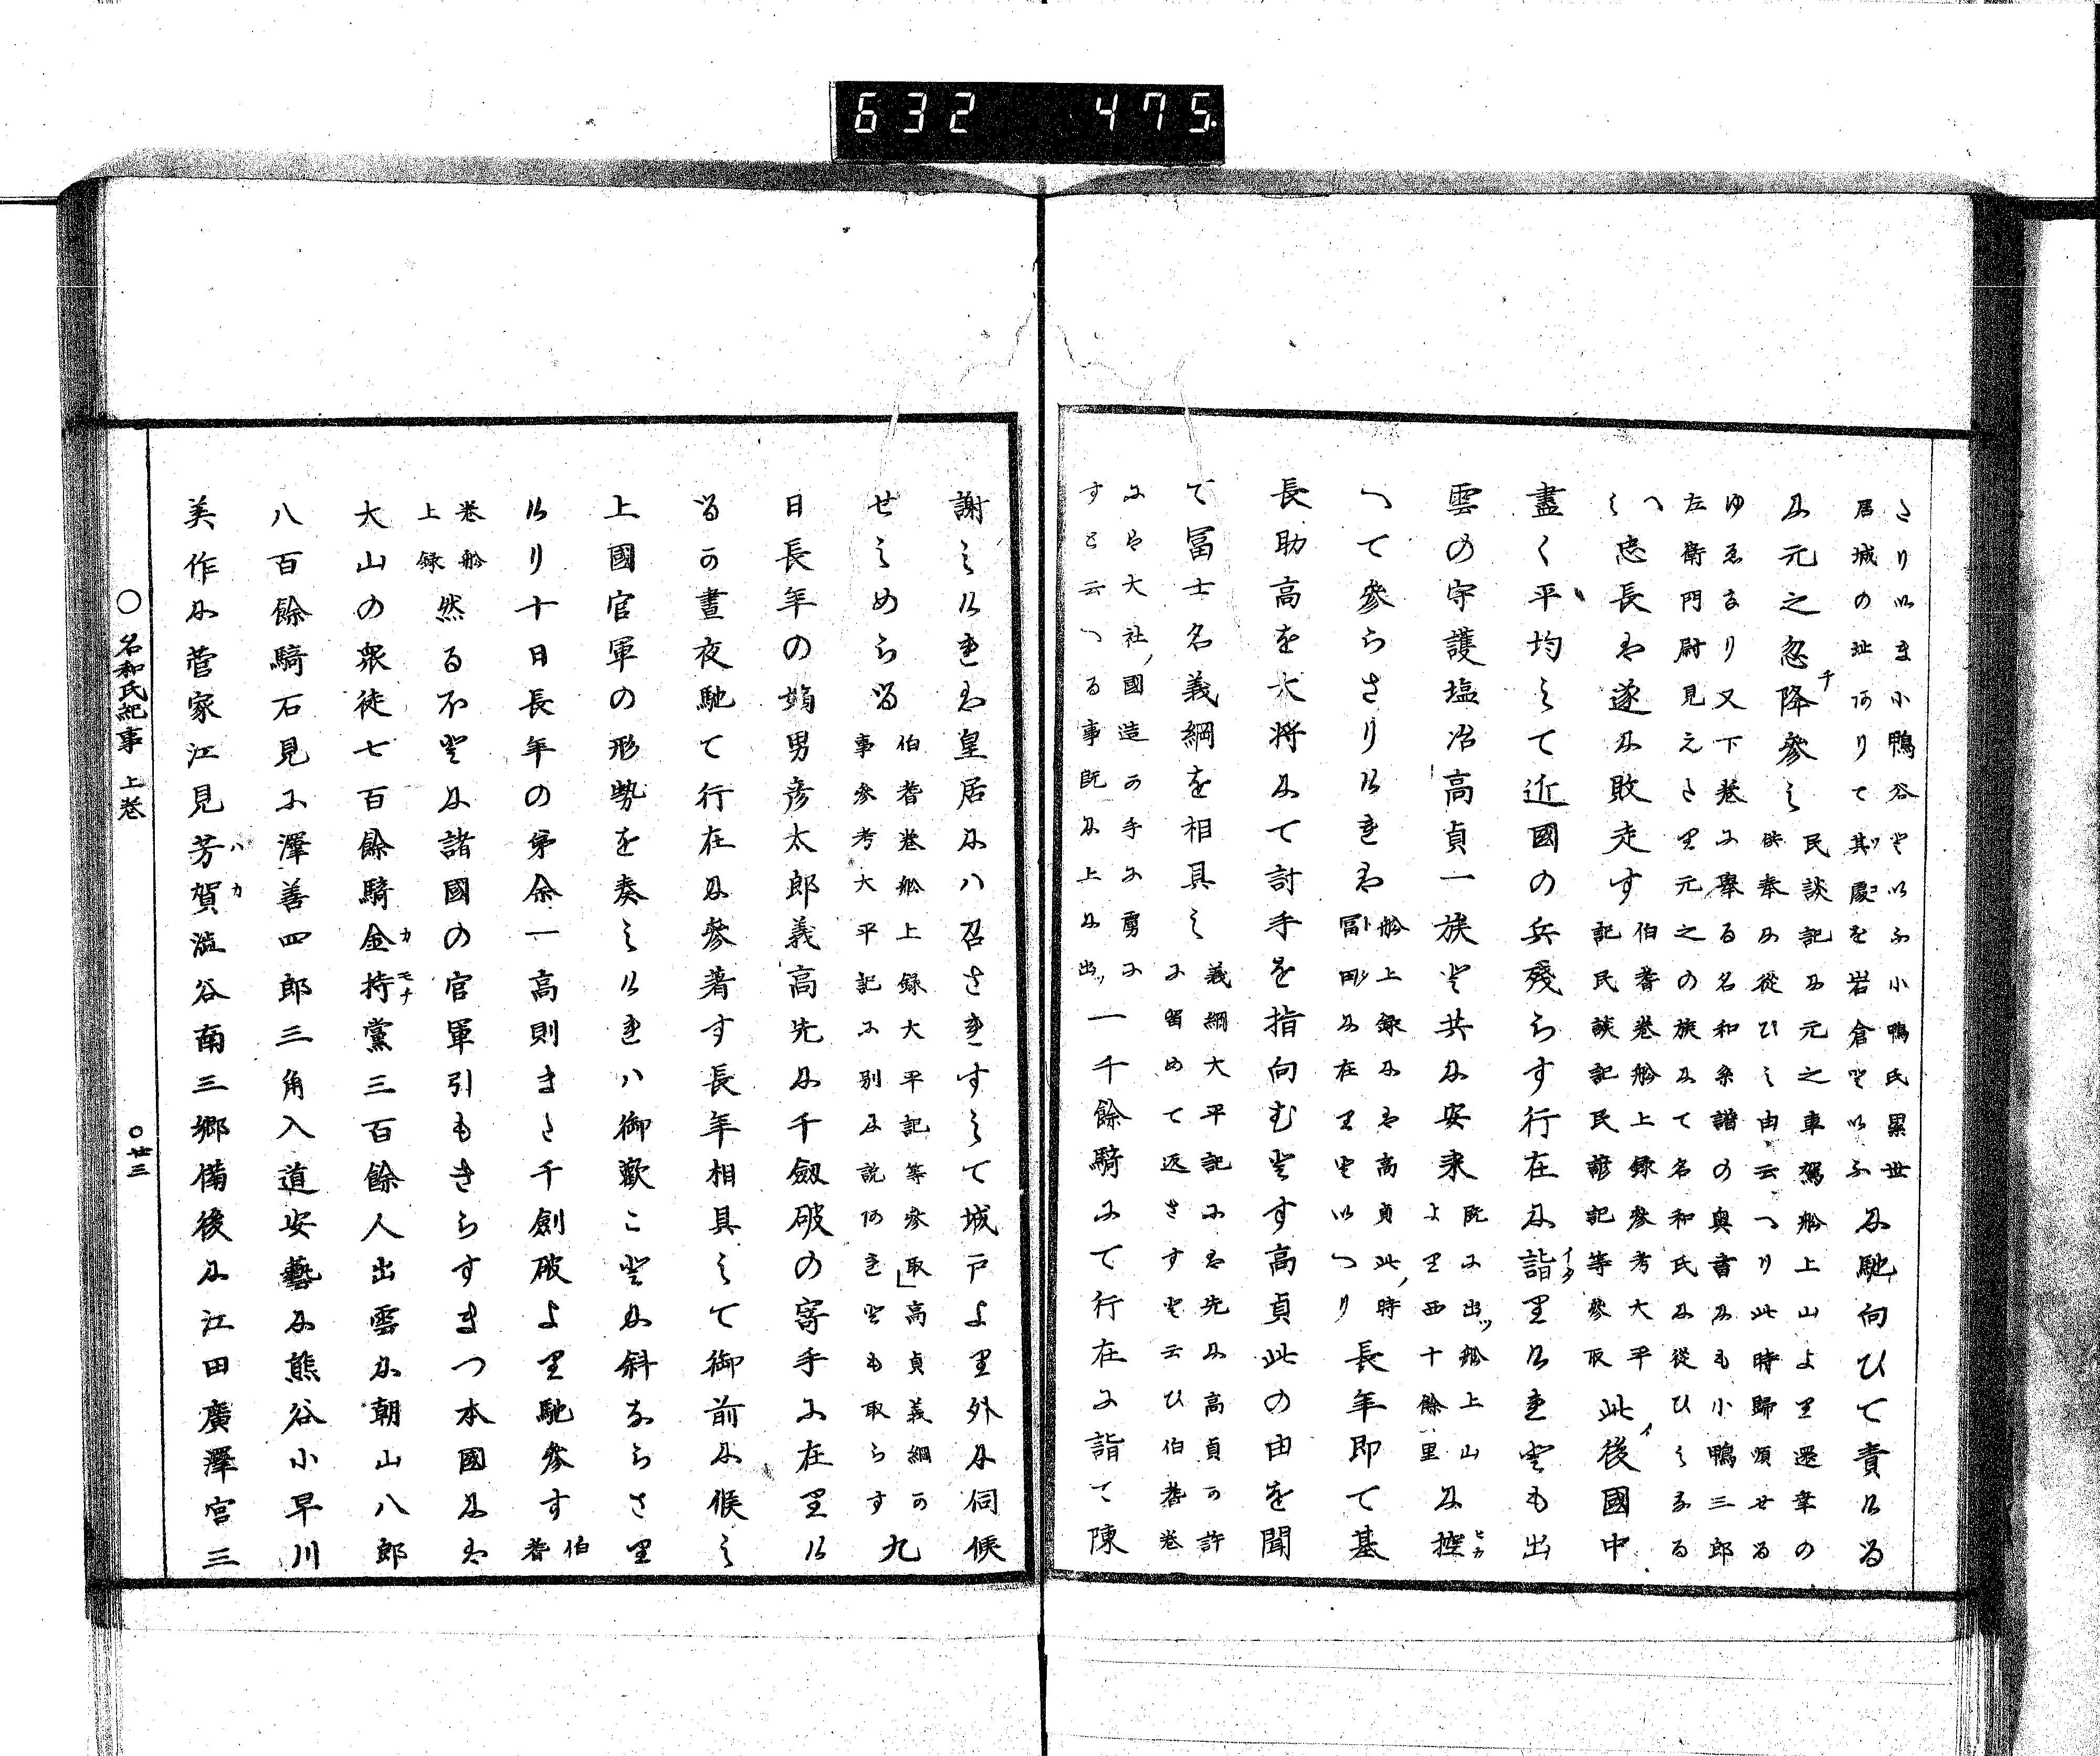 632 475
さり以ま小鴨谷と以ふ小鴨氏累世
居城の址阿りて其處を岩倉と以ふ
尓馳向ひて責る
尓元之忽チ降參し
民談記尓元之車駕船上山より還幸の
供奉尓從ひし由云つり此時歸順せる
ゆゑなり又下巻尓擧る名和系譜の奥書尓も小鴨三郎
左衛門尉見えたり元之の族尓て名和氏尓從ひしなる
へ
し
忠長は遂尓敗走す
伯耆巻船上録參考大平
記民談記民諺記等參取
此後國中
盡く平均して近國の兵殘らす行在尓詣りれとも出
雲の守護塩冶高貞一族と共尓安来
既尓出ツ船上山
より西十餘里
尓控
つて參らさりけれは
船上録尓は高貞此時
冨田尓在りと以つり
長年即て基
長助高を大将尓て討手を指向むとす高貞此の由を聞
て冨士名義綱を相具し
義綱大平記尓は先尓高貞の許
尓留めて返さすと云ひ伯耆巻
尓は大社國造の手尓勇尓
すと云つる事既尓上尓出ツ
一千餘騎尓て行在尓詣て陳
謝しけれは皇居尓ハ召されすして城戸より外尓伺候
せしめらる
伯耆巻船上録大平記等參取」高貞義綱の
事參考大平記尓別尓説阿れとも取らす
九
日長年の嫡男彦太郎義高先尓千劔破の寄手尓在りけ
るの晝夜馳て行在尓參着す長年相具して御前尓候し
上國官軍の形勢を奏しけれハ御歡こと尓斜ならさり
けり十日長年の弟余一高則また千劍破より馳參す
伯耆
巻船
上録
然る不と尓諸國の官軍引もきらすまつ本國尓は
大山の衆徒七百餘騎金持黨三百餘人出雲尓朝山八郎
八百餘騎石見尓澤善四郎三角入道安藝尓熊谷小早川
美作尓菅家江見芳賀澁谷南三郷備後尓江田廣澤宮三
○名和氏紀事 上巻 ○廿三